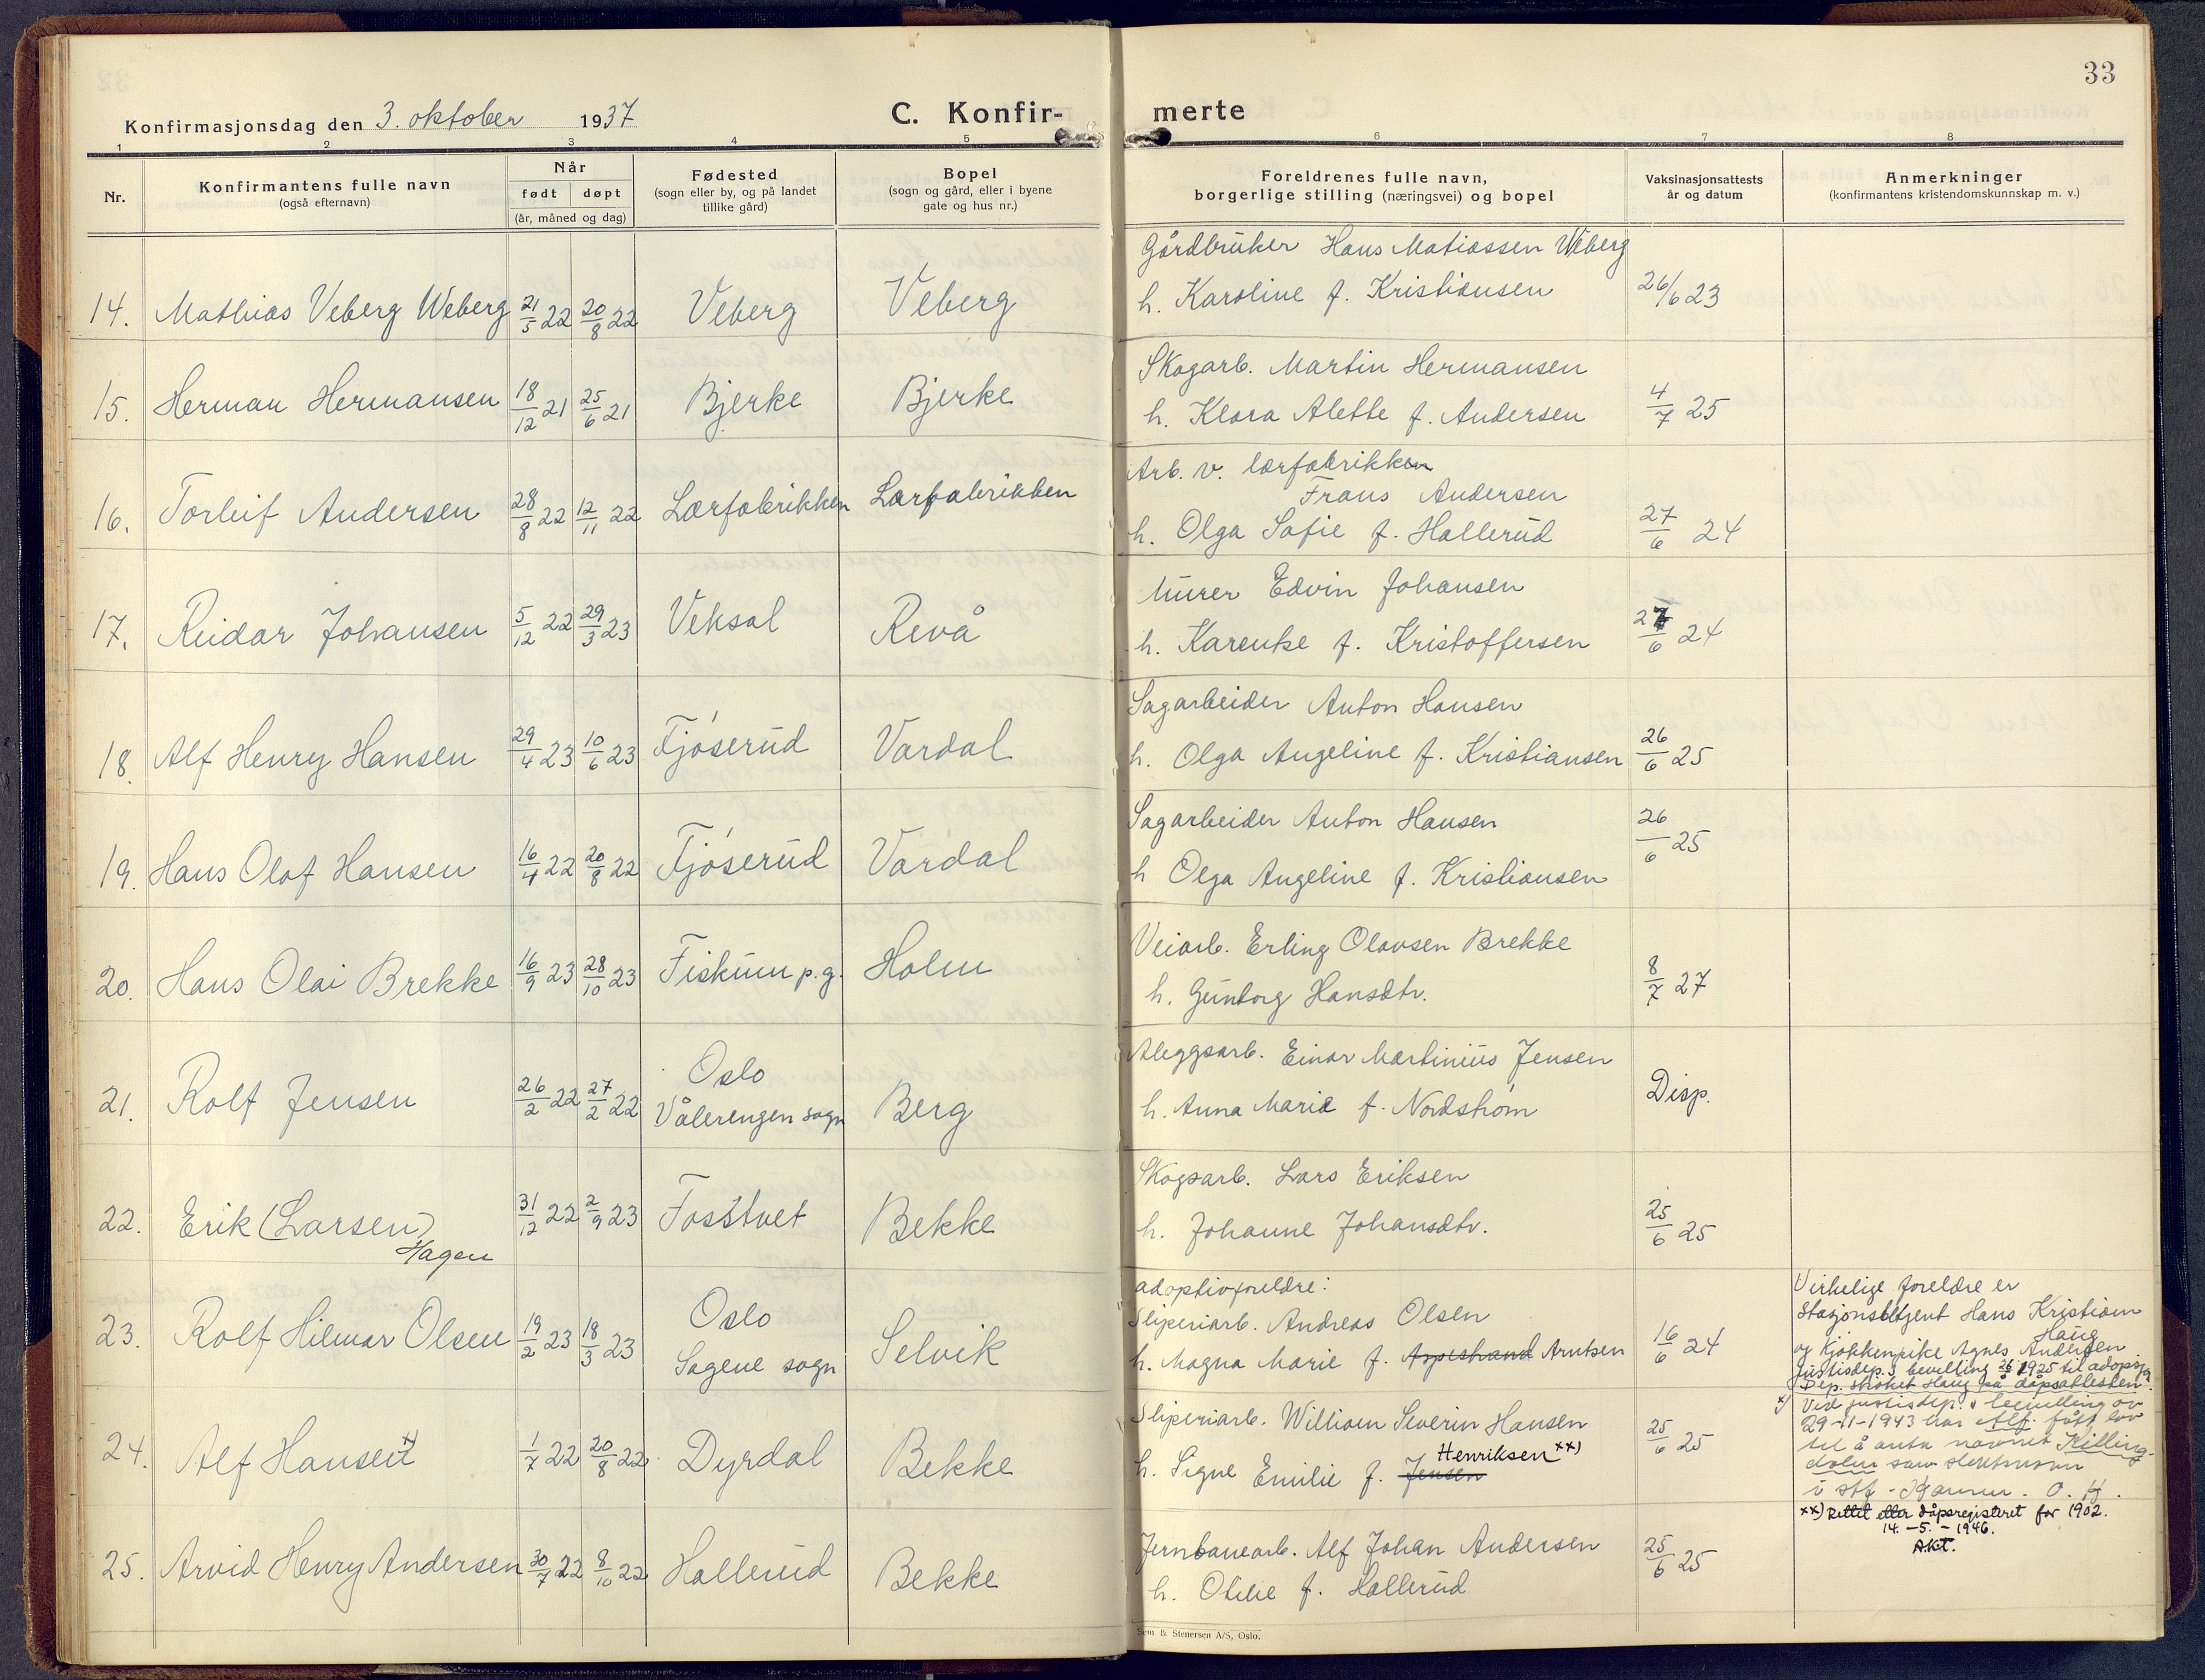 33
Konfirmasjonsdag den 3. oktober 1937
C. Konfir-merte
1 2 3 4 5 6 7 8
Nr.
Konfirmantens fulle navn
(også efternavn)
Når
født døpt
(år, måned og dag)
Fødested
(sogn eller by, og på landet
tillike gård)
Bopel
(sogn og gård, eller i byene
gate og hus nr.)
Foreldrenes fulle navn,
borgerlige stilling (næringsvei) og bopel
Vaksinasjonsattests
år og datum
Anmerkninger
(konfirmantens kristendomskunnskap m. v.)
Gårdbruker Hans Matiassen Weberg
14. Mathias Veberg Weberg 21/5 22 20/8 22 Veberg Veberg h. Karoline f. Kristiansen 26/6 23
Skogarb. Martin Hermansen
15. Herman Hermansen 18/12 21 25/6 21 Bjerke Bjerke h. Klara Alette f. Andersen 4/7 25
Arb. v. lærfabrikken
Frans Andersen
16. Torleif Andersen 28/8 22 12/11 22 Lærfabrikken Lærfabrikken h. Olga Sofie f. Hallerud 27/6 24
Murer Edvin Johansen
17. Reidar Johansen 5/12 22 29/3 23 Veksal Revå h. Karentse f. Kristoffersen 27/6 24
Sagarbeider Anton Hansen
18. Alf Henry Hansen 29/4 23 10/6 23 Fjøserud Vardal h. Olga Angeline f. Kristiansen 26/6 25
Sagarbeider Anton Hansen
19. Hans Olaf Hansen 16/4 22 20/8 22 Fjøserud Vardal h Olga Angeline f. Kristiansen 26/6 25
Veiarb. Erling Olavsen Brekke
20. Hans Olai Brekke 16/9 23 28/10 23 Fiskum p.g. Holm h. Gunborg Hansdtr. 8/7 27
Aleggsarb. Einar Martinius Jensen
21. Rolf Jensen 26/2 22 27/2 22 Oslo
Vålerengen sogn Berg h. Anna Marie f. Nordstrøm Disp.
Skogsarb. Lars Eriksen
22. Erik (Larsen) 31/12 22 2/9 23 Fosstvet Bekke h. Johanne Johansdtr. 25/6 25
Hagen
adoptivforeldre:
Sliperiarb. Andreas Olsen
23. Rolf Hilmar Olsen 19/2 23 18/3 23 Oslo
Sagene sogn Selvik h. Magna Marie f. Arntsen 16/6 24
Virkelige foreldre er
Stasjonsbetjent Hans Kristian
Haug
og Kjøkkenpike Agnes Andersen
Justisdep.s bevilling 1925 til adopsjon
Dep. strøket Haug på dåpsattesten
Sliperiarb. William Severin Hansen
24. Alf Hansen x) 1/7 22 20/8 22 Dyrdal Bekke h. Signe Emilie f. Jensen Henriksen xx) 25/6 25
x) Ved justisdep.s bevilling av
29-11-1943 har Alf. fått lov
til å anta navnet Killing-
dalen som slektsnavn
i stf. Hansen. O. H.
xx) Rettet etter dåpsregisteret for 1902.
14. -5. - 1946.
A.K.T.
Jernbanearb. Alf Johan Andersen
25. Arvid Henry Andersen 30/7 22 8/10 22 Hallerud Bekke h. Otilie f. Hallerud 25/6 25
Sem & Stenersen A/S, Oslo.